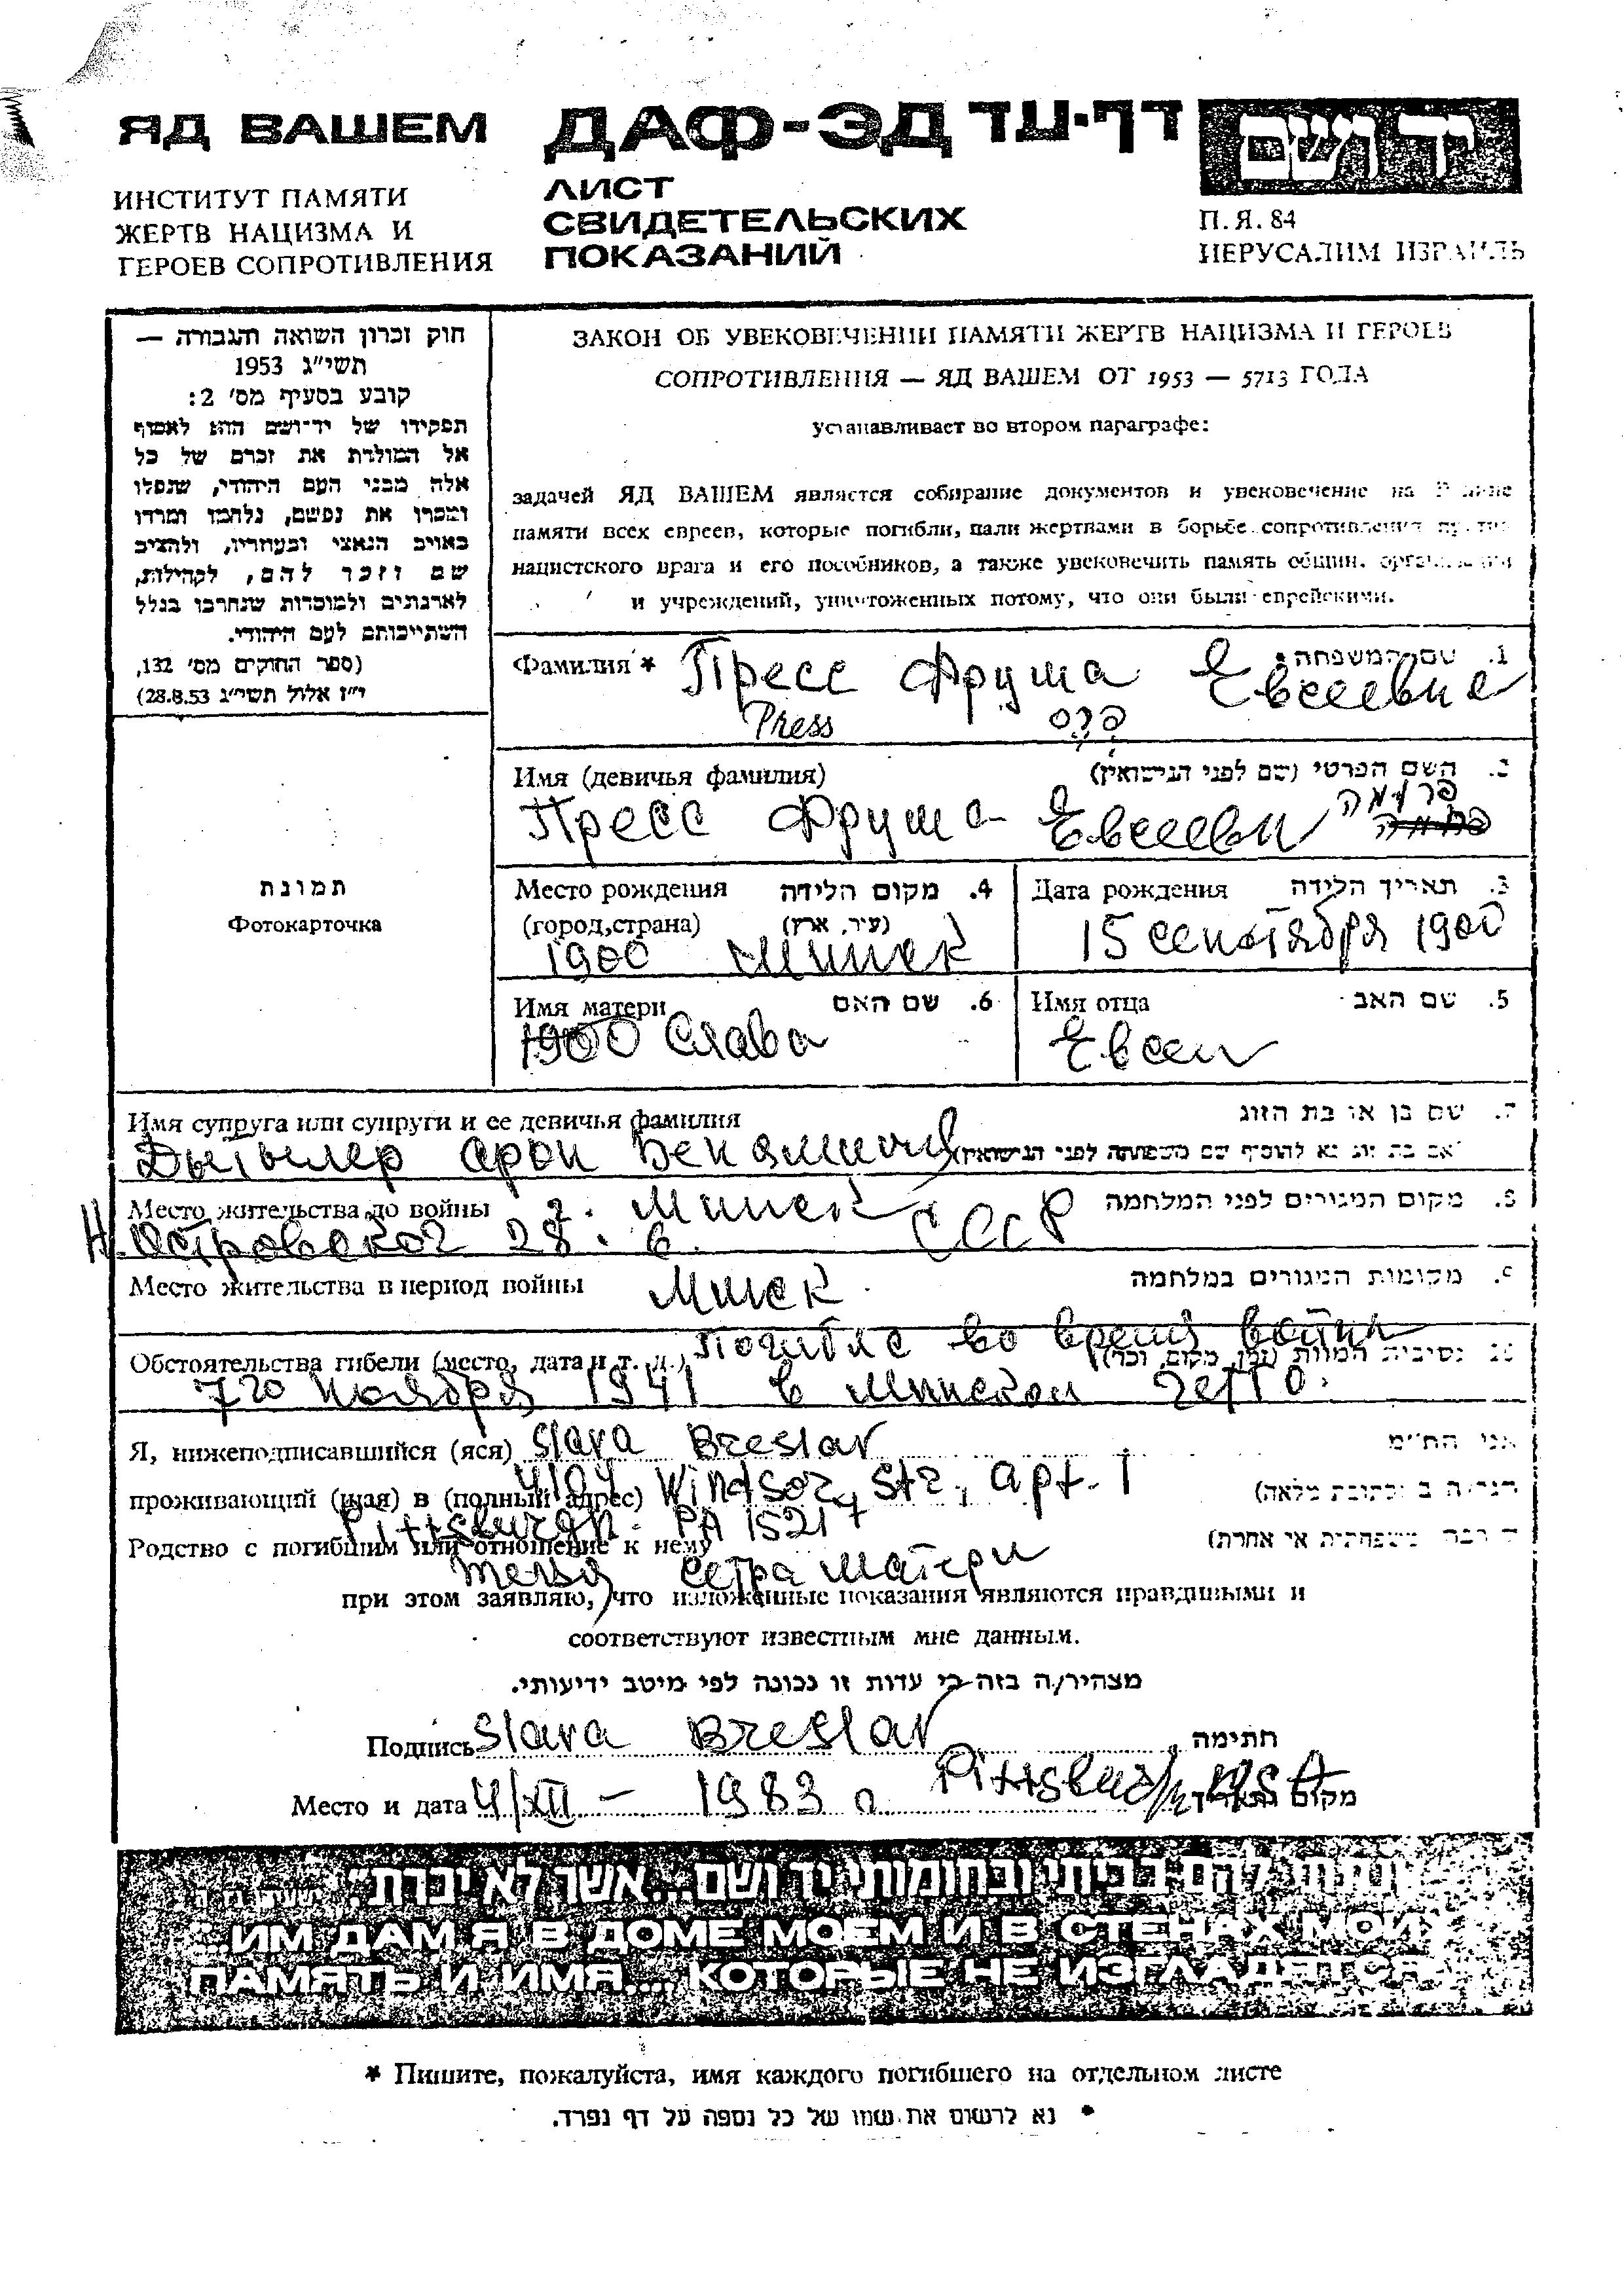 ЯД ВАШЕМ
ИНСТИТУТ ПАМЯТИ
ЖЕРТВ НАЦИЗМА И
ГЕРОЕВ СОПРОТИВЛЕНИЯ
ДАФ-ЭД דף-עד
ЛИСТ
СВИДЕТЕЛЬСКИХ
ПОКАЗАНИЙ
יד ושם
П.Я. 84
ИЕРУСАЛИМ ИЗРАИЛЬ
חוק זכרון השואה והגבורה —
תשי"ג 1953
קובע בסעיף מס' 2:
תפקידו של יד-ושם הוא לאסוף
אל המולדת את זכרם של כל
אלה מבני העם היהודי, שנפלו
ומסרו את נפשם, נלחמו ומרדו
באויב הנאצי ובעוזריו, ולהציב
שם וזכר להם, לקהילות,
לארגונים ולמוסדות שנחרבו בגלל
השתייכותם לעם היהודי.
(ספר החוקים מס' 132,
י"ז אלול תשי"ג 28.8.53)
ЗАКОН ОБ УВЕКОВЕЧЕНИИ ПАМЯТИ ЖЕРТВ НАЦИЗМА И ГЕРОЕВ
СОПРОТИВЛЕНИЯ — ЯД ВАШЕМ ОТ 1953 — 5713 ГОДА
устанавливает во втором параграфе:
задачей ЯД ВАШЕМ является собирание документов и увековечение на Родине
памяти всех евреев, которые погибли, пали жертвами в борьбе сопротивления против
нацистского врага и его пособников, а также увековечить память общин, организаций
и учреждений, уничтоженных потому, что они были еврейскими.
Фамилия * Пресс Фрума Евсеевна 1. שם המשפחה *
Press פרס
Имя (девичья фамилия) 2. השם הפרטי (שם לפני הנישואין)
Пресс Фрума Евсеевн פרומה
Место рождения 4. מקום הלידה
(город,страна) (עיר, ארץ)
1900 Минск
Дата рождения 3. תאריך הלידה
15 сентября 1900
Имя матери 6. שם האם
1900 Слава
Имя отца 5. שם האב
Евсей
תמונת
Фотокарточка
Имя супруга или супруги и ее девичья фамилия 7. שם בן או בת הזוג
אם בת זוג נא להוסיף שם משפחתה לפני הנישואין)
Арон
Место жительства до войны г. Минск СССР 8. מקום המגורים לפני המלחמה
Н. Островского 28. 6.
Место жительства в период войны Минск 9. מקומות המגורים במלחמה
Обстоятельства гибели (место, дата и т. д.) Погибла во время войны 10. נסיבות המוות (זמן, מקום, וכו')
7го ноября 1941 в минском гетто.
Я, нижеподписавшийся (яся) Slava Breslav אני הח"מ
проживающий (щая) в (полный адрес) 4104 Windsor str, apt. 1 הגר/ה ב (כתובת מלאה)
Pittsburgh. PA 15217
Родство с погибшим или отношение к нему קרבה משפחתית או אחרת)
тетя сетра матери
при этом заявляю, что изложенные показания являются правдивыми и
соответствуют известным мне данным.
מצהיר/ה בזה כי עדות זו נכונה לפי מיטב ידיעותי.
Подпись Slava Breslav חתימה
Место и дата 4/XII - 1983 г. Pittsburgh USA מקום ותאריך
ונתתי להם בביתי ובחומותי יד ושם...אשר לא יכרת".
...ИМ ДАМ Я В ДОМЕ МОЕМ И В СТЕНАХ МОИХ
ПАМЯТЬ И ИМЯ... КОТОРЫЕ НЕ ИЗГЛАДЯТСЯ
* Пишите, пожалуйста, имя каждого погибшего на отдельном листе
* נא לרשום את שמו של כל נספה על דף נפרד.